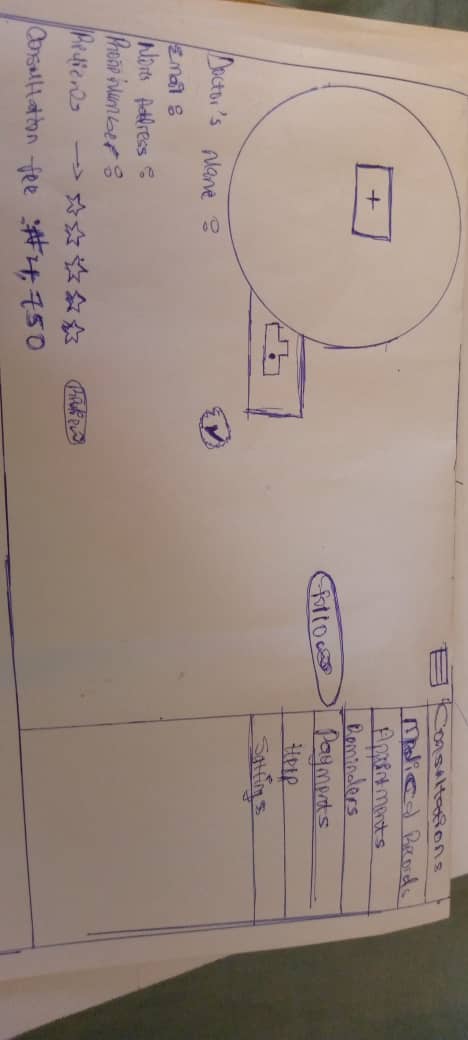 Consultations
Medical Records
Appointments
Reminders
Payments
Help
Settings
follow
Doctor's Name :
Email :
Work Address :
Phone Number :
→ ☆☆☆☆☆
Consultation fee : ₦4,750